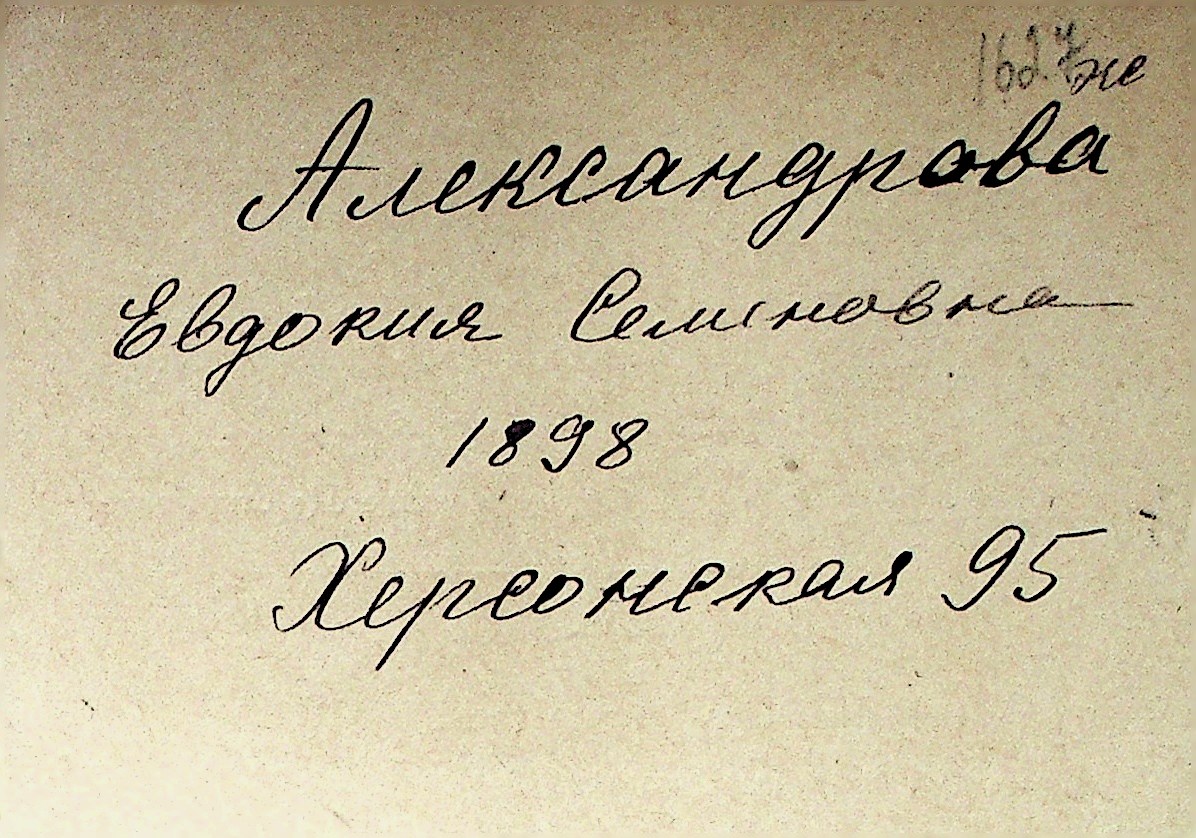 Александрова
Евдокия Семеновна
1898
Херсонская 95